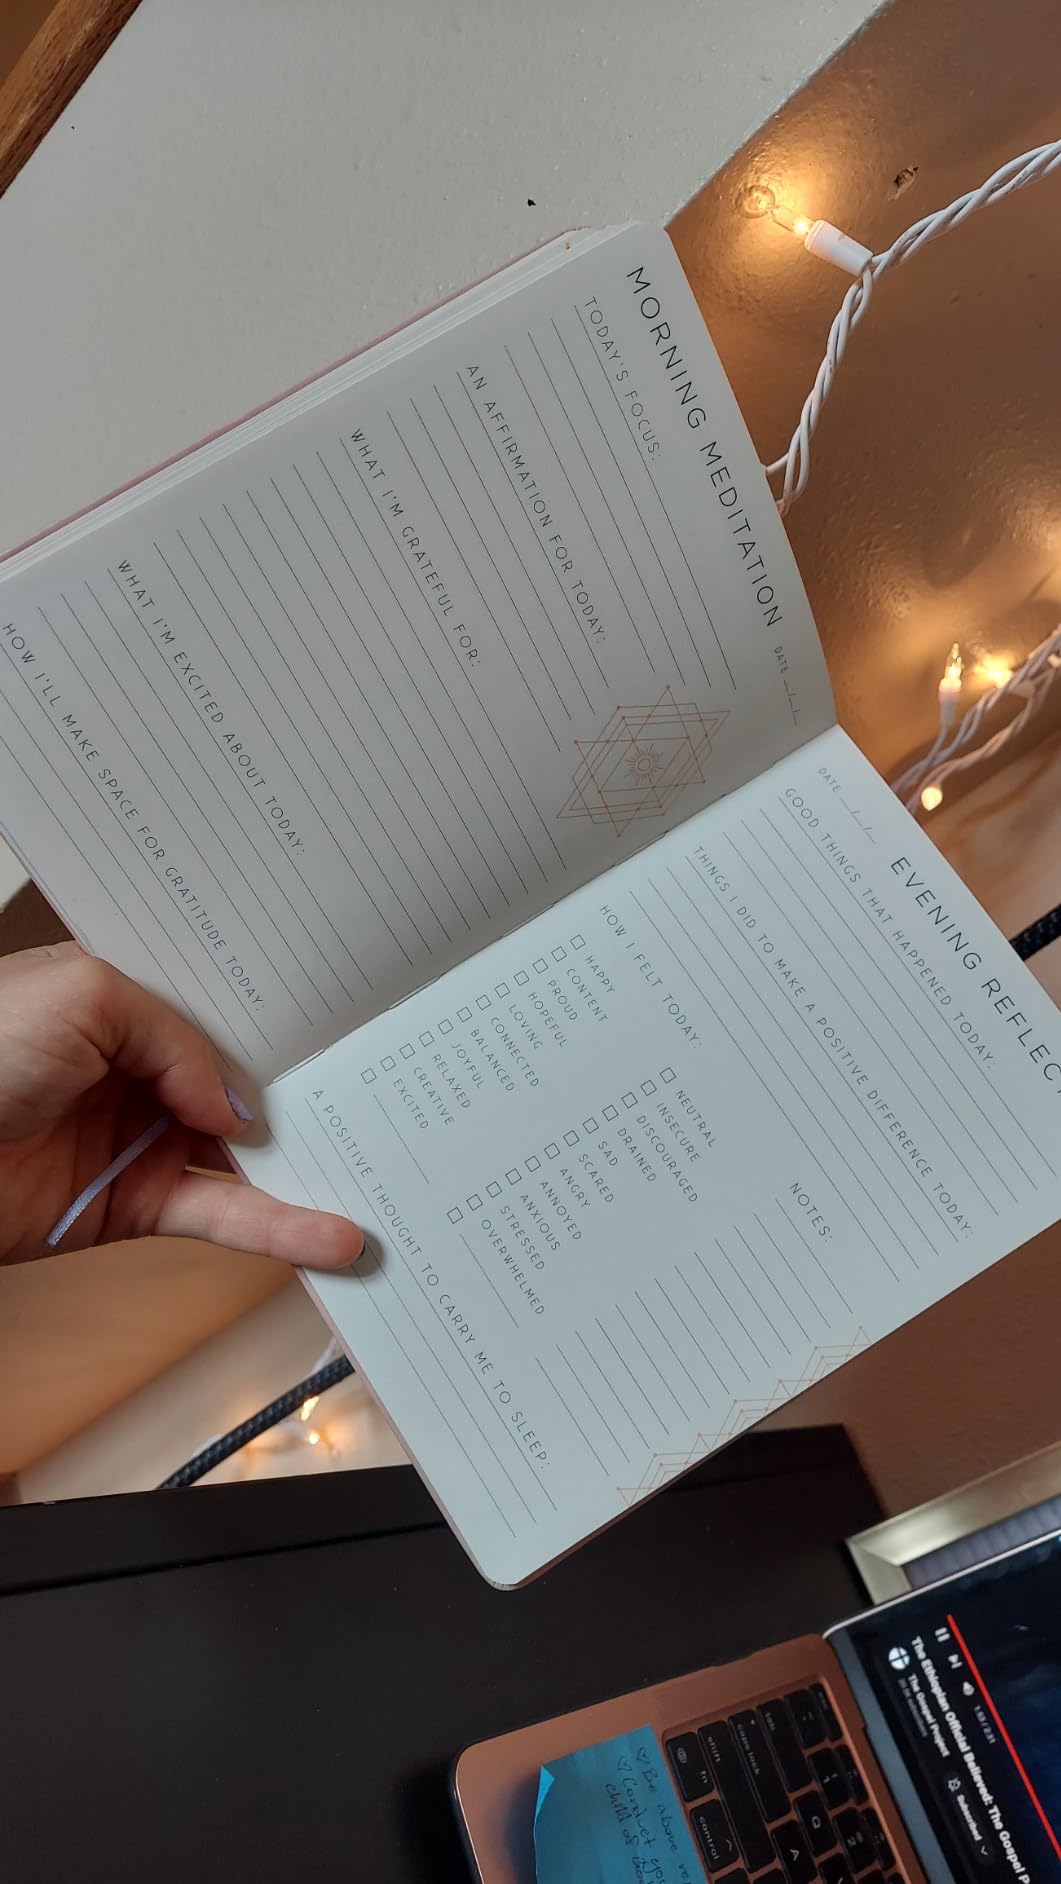 MORNING MEDITATION
DATE __/__/__
TODAY'S FOCUS:
AN AFFIRMATION FOR TODAY:
WHAT I'M GRATEFUL FOR:
WHAT I'M EXCITED ABOUT TODAY:
HOW I'LL MAKE SPACE FOR GRATITUDE TODAY:
DATE __/__/__
EVENING REFLEC
GOOD THINGS THAT HAPPENED TODAY:
THINGS I DID TO MAKE A POSITIVE DIFFERENCE TODAY:
HOW I FELT TODAY:
HAPPY
CONTENT
PROUD
HOPEFUL
LOVING
CONNECTED
BALANCED
JOYFUL
RELAXED
CREATIVE
EXCITED
NEUTRAL
INSECURE
DISCOURAGED
DRAINED
SAD
SCARED
ANGRY
ANNOYED
ANXIOUS
STRESSED
OVERWHELMED
NOTES:
A POSITIVE THOUGHT TO CARRY ME TO SLEEP:
1:53 / 2:31
The Ethiopian Official Believed: The Gospel P
The Gospel Project
Subscribed
tab
caps lock
shift
fn
control
Q
A
Be above
Conduct
child of God